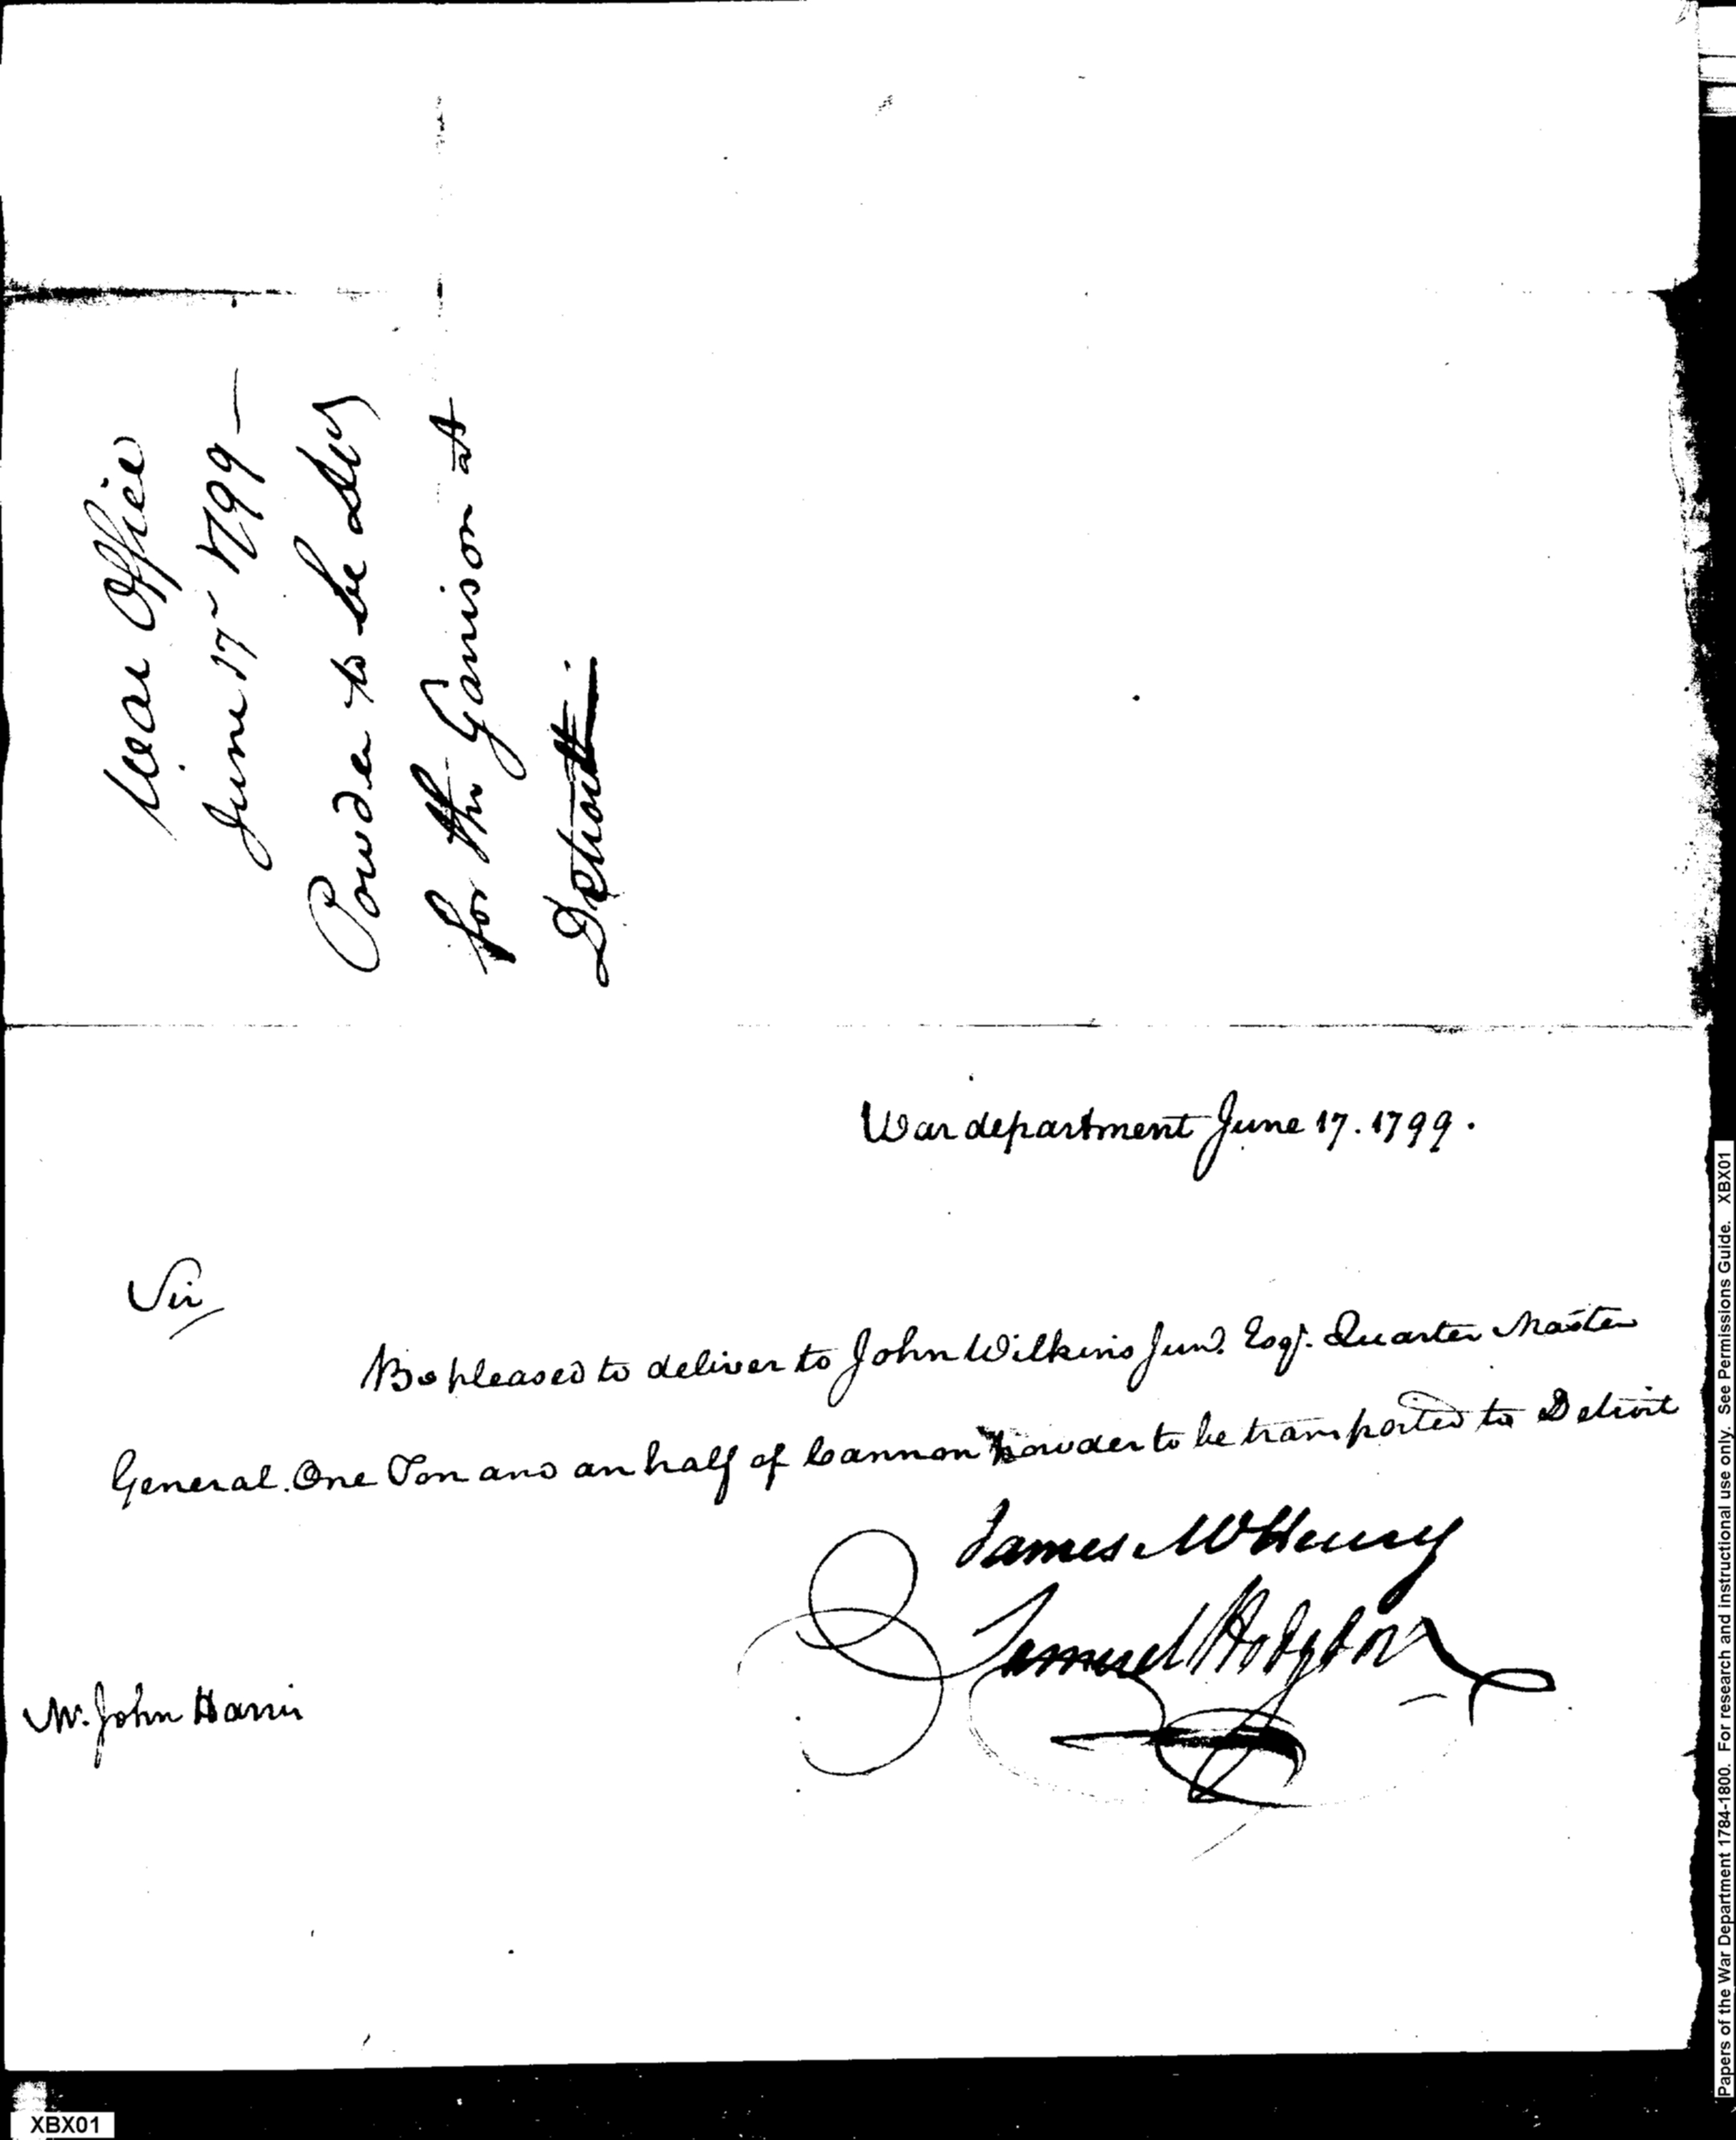 War Office
June 17 1799 —
Powder to be
for the Garrison at
Detroitt
War department June 17. 1799.
Sir
Be pleased to deliver to John Wilkins Junr. Esqr. Quarter Master
General. One Ton and an half of Cannon powder to be transported to Detroit
James McHenry
Samuel Hodgdon
Mr. John Harris
XBX01
Papers of the War Department 1784-1800. For research and instructional use only. See Permissions Guide. XBX01